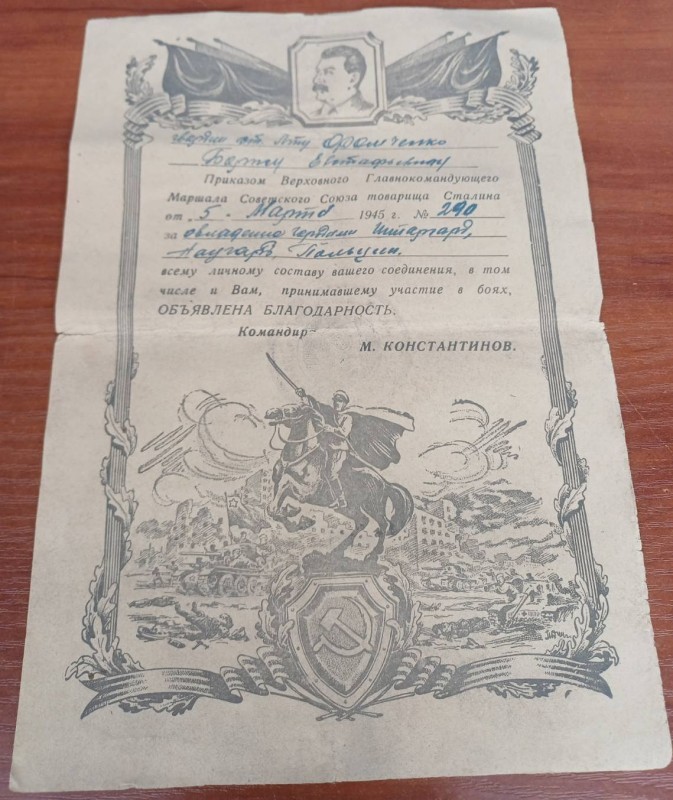 гвардии ст. л-ту
Приказом Верховного Главнокомандующего
Маршала Советского Союза товарища Сталина
от 5 - Марта 1945 г. № 290
за овладение городами Штаргард,
Наугард, Польцин.
всему личному составу вашего соединения, в том
числе и Вам, принимавшему участие в боях,
ОБЪЯВЛЕНА БЛАГОДАРНОСТЬ.
Командир
М. КОНСТАНТИНОВ.